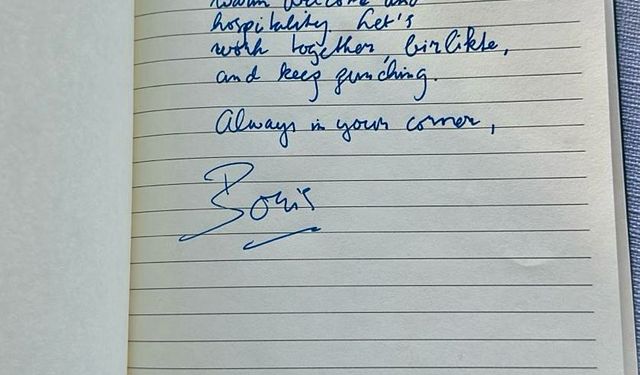 warm welcome and
hospitality. Let's
work together, birlikte,
and keep punching.
Always in your corner,
Boris